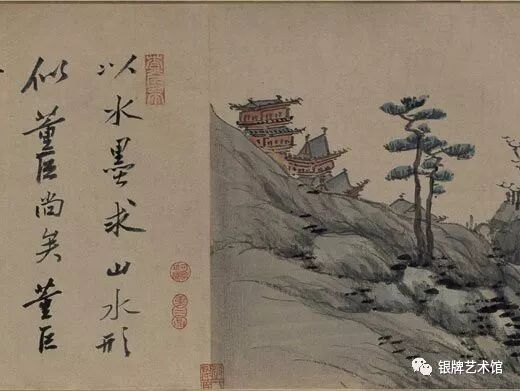 以水墨求山水形
似董巨尚矣董巨
银牌艺术馆